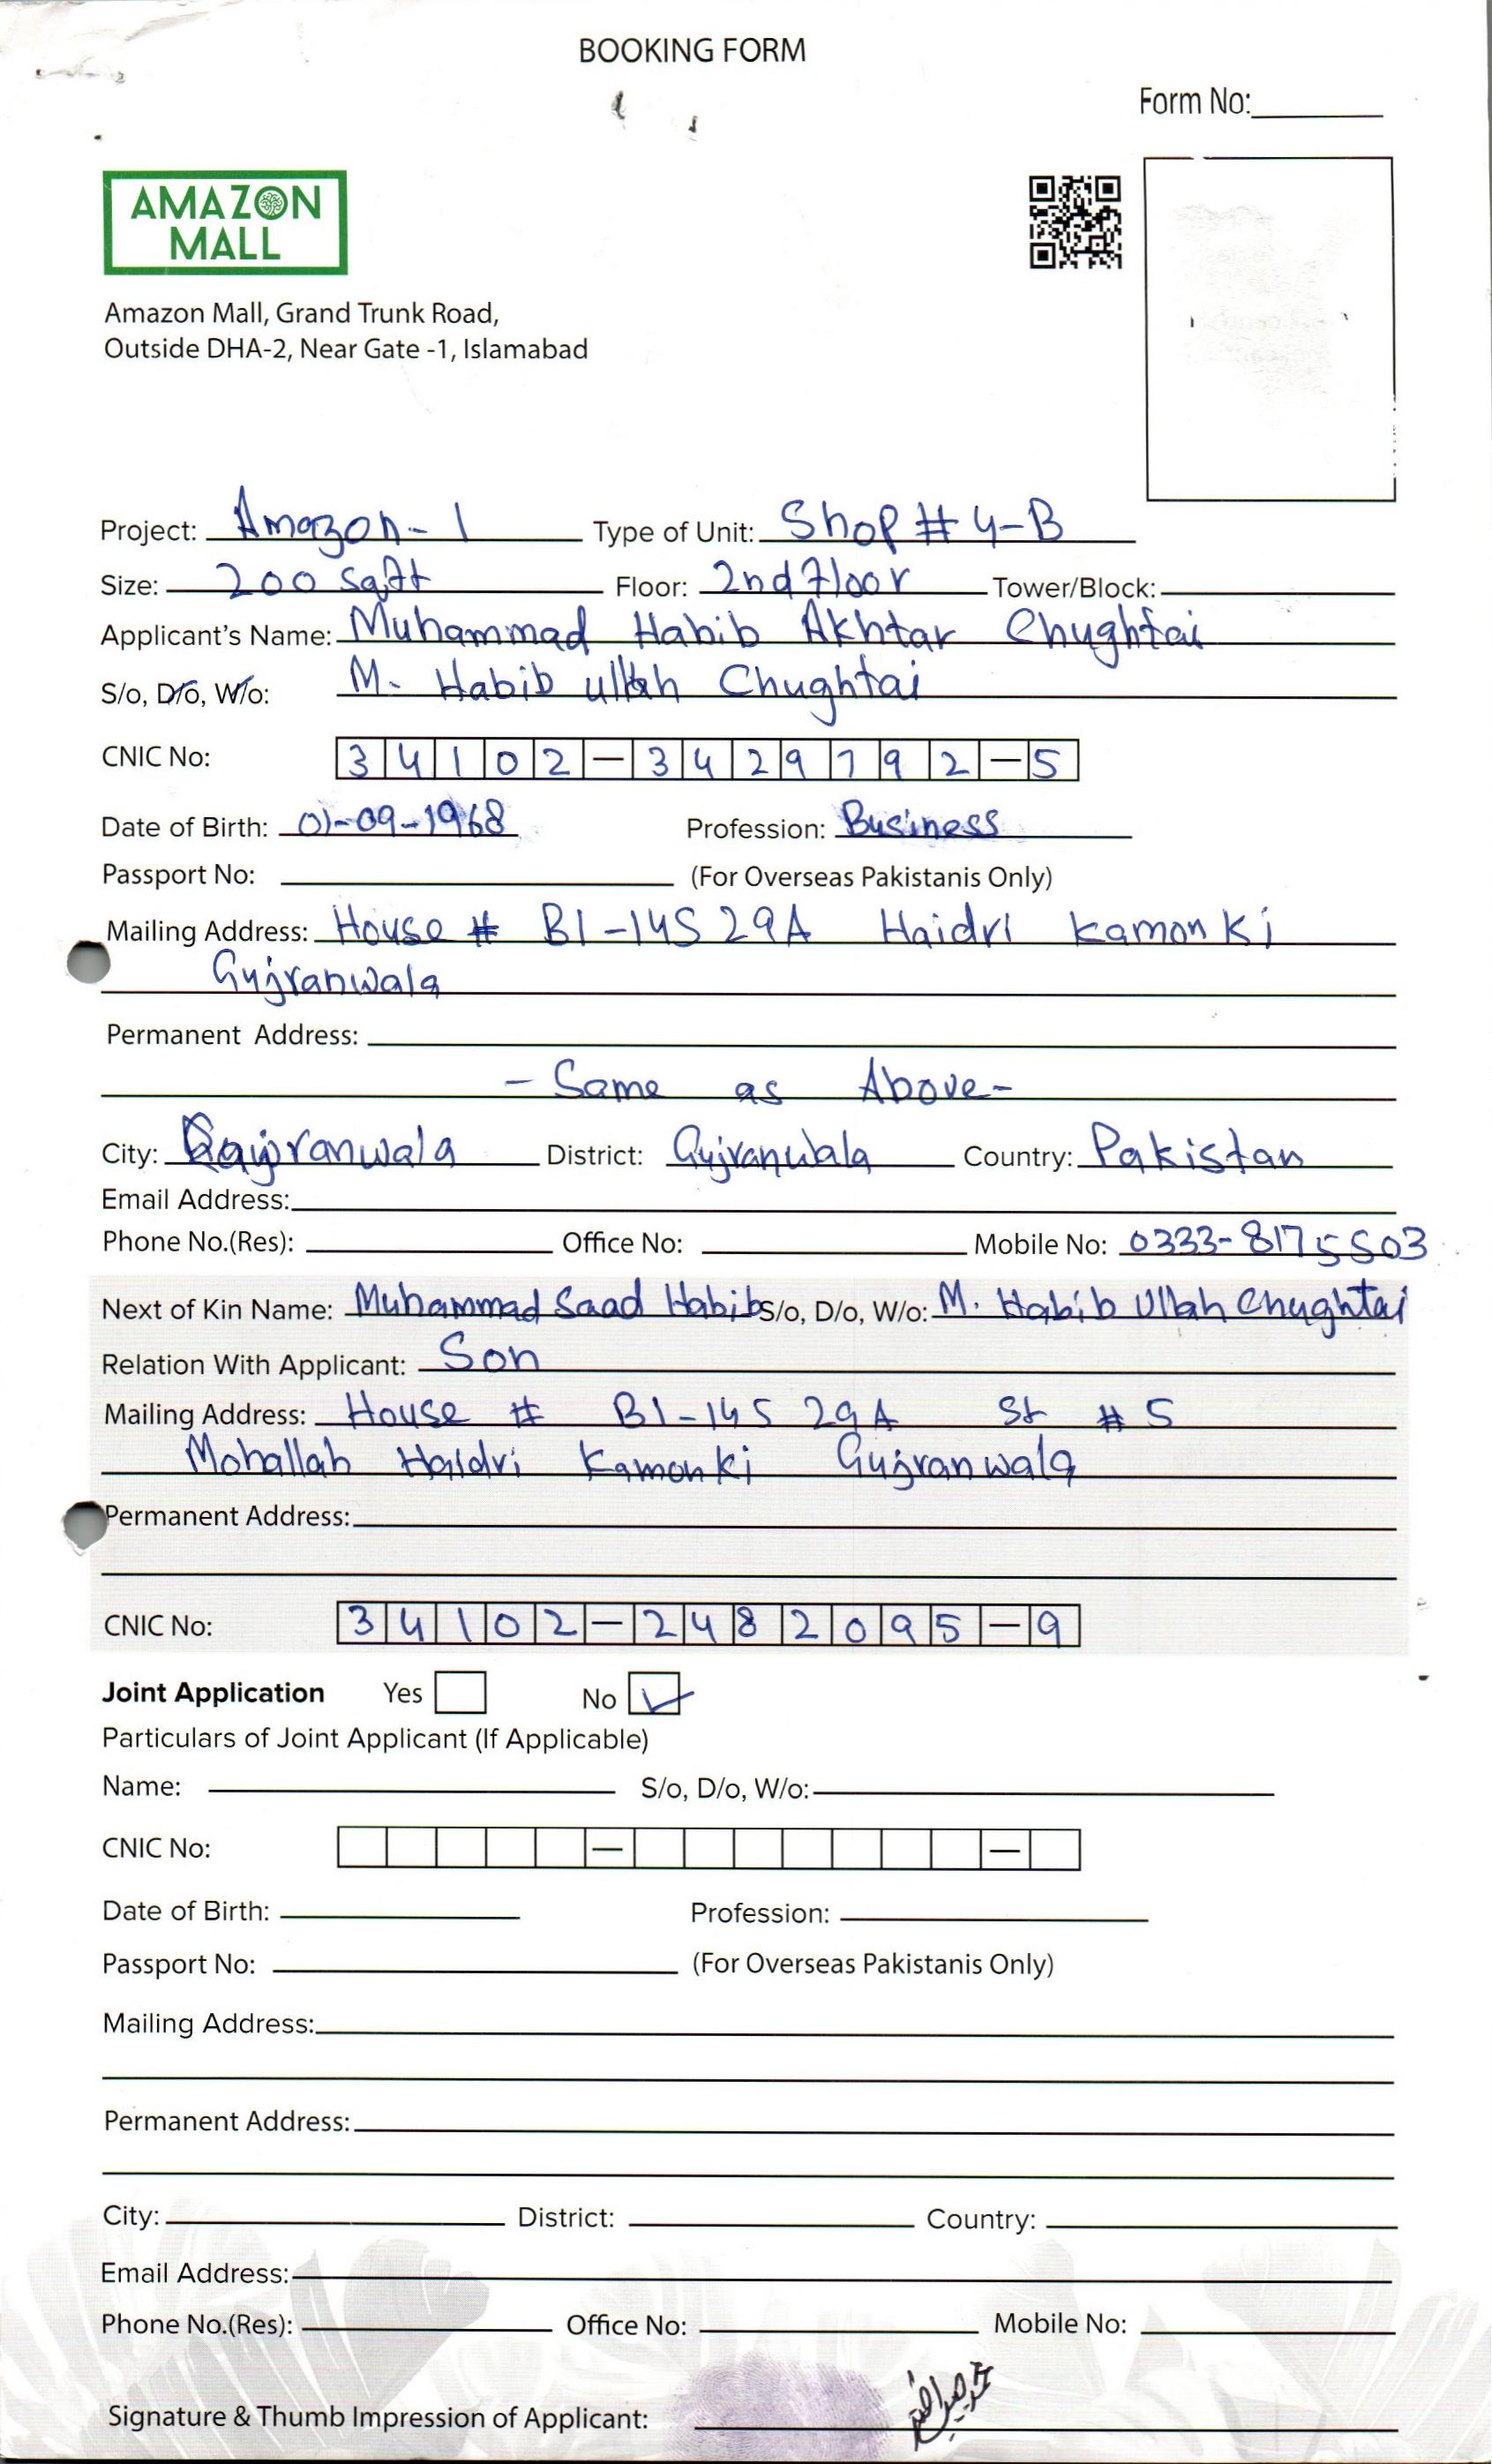 BOOKING FORM
Form No:
AMAZON
MALL
Amazon Mall, Grand Trunk Road,
Outside DHA-2, Near Gate -1, Islamabad
Project: Amazon-1 Type of Unit: Shop # 4-B
Size: 200 sqft Floor: 2nd Floor Tower/Block:
Applicant's Name: Muhammad Habib Akhtar Chughtai
S/o, D/o, W/o: M. Habib ullah Chughtai
CNIC No: 34102-3429792-5
Date of Birth: 01-09-1968 Profession: Business
Passport No: (For Overseas Pakistanis Only)
Mailing Address: House # B1-14S 29A Haidri Kamonki
Gujranwala
Permanent Address:
- Same as Above-
City: Gujranwala District: Gujranwala Country: Pakistan
Email Address:
Phone No.(Res): Office No: Mobile No: 0333-8175503
Next of Kin Name: Muhammad Saad Habib S/o, D/o, W/o: M. Habib Ullah Chughtai
Relation With Applicant: Son
Mailing Address: House # B1-14S 29A St # 5
Mohallah Haidri Kamonki Gujranwala
Permanent Address:
CNIC No: 34102-2482095-9
Joint Application Yes No ✓
Particulars of Joint Applicant (If Applicable)
Name: S/o, D/o, W/o:
CNIC No: — —
Date of Birth: Profession:
Passport No: (For Overseas Pakistanis Only)
Mailing Address:
Permanent Address:
City: District: Country:
Email Address:
Phone No.(Res): Office No: Mobile No:
Signature & Thumb Impression of Applicant: